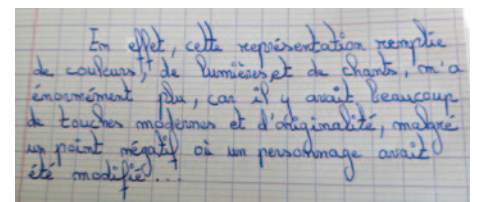 En effet, cette représentation remplie
de couleurs, de lumières, et de chants, m'a
énormément plu, car il y avait beaucoup
de touches modernes et d'originalité, malgré
un point négatif où un personnage avait
été modifié...